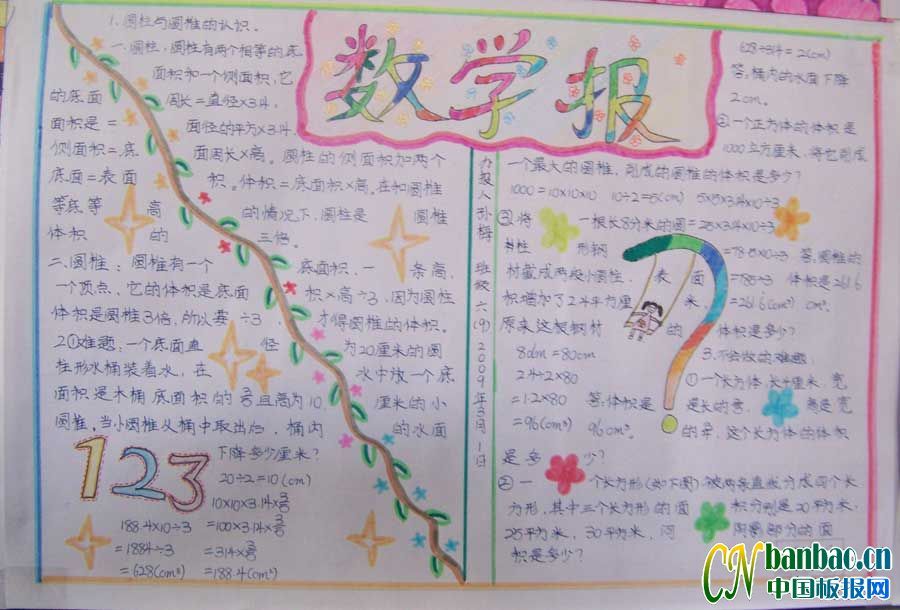 数学报
1.圆柱与圆椎的认识。
一.圆柱：圆柱有两个相等的底
面积和一个侧面积，它
的底面 周长=直径×3.14，
面积是= 面径的平方×3.14.
侧面积=底 面周长×高。圆柱的侧面积加两个
底面=表面 积。体积=底面积×高。在和圆椎
等底等 高 的情况下，圆柱是 圆椎
体积 的 三倍。
二.圆椎：圆椎有一个 底面积，一 条高，
一个顶点，它的体积是底面 积×高÷3，因为圆柱
体积是圆椎3倍，所以要÷3， 才得圆椎的体积。
2.①难题：一个底面直 径 为20厘米的圆
柱形水桶装着水，在 水中放一个底
面积是木桶底面积的 且高为10 厘米的小
圆椎，当小圆椎从桶中取出后，桶内 的水面
下降多少厘米？
123
20÷2=10(cm)
10×10×3.14×
188.4×10÷3 =100×3.14×
=1884÷3 =314×
=628(cm³) =188.4(cm²)
628÷314=2(cm)
答：桶内的水面下降
2cm。
②一个正方体的体积是
1000立方厘米，将它削成
一个最大的圆椎，削成的圆椎的体积是多少？
1000=10×10×10 10÷2=5(cm) 5×5×3.14×10÷3
③将 一根长8分米的圆 =25×3.14×10÷3
柱 形钢 =78.5×10÷3 答：圆椎的
材截成两段小圆柱， 表 面 =785÷3 体积是261.6
积增加了2.4平方厘 米 =261.6(cm³) cm³。
原来这根钢材 的 体积是多少？
8dm=80cm
2.4÷2×80
=1.2×80 答：体积是
=96(cm³) 96cm³。
3.不会做的难题：
①一个长方体，长4厘米，宽
是长的 高是宽
的 这个长方体的体积
是多 少？
②一 个长方形(如下图)，被两条直线分成四个长
方形，其中三个长方形的面 积分别是20平方米，
25平方米，30平方米，问 阴影部分的面
积是多少？
办报人 孙梅 班级 六(9) 2009年3月1日
CN banbao.cn
中国板报网